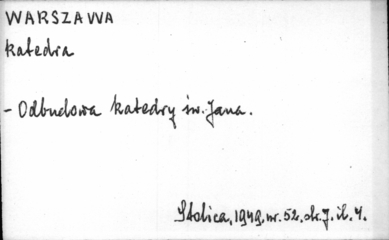 WARSZAWA
katedra
- Odbudowa katedry św. Jana.
Stolica, 1949, nr. 52. str. 7. il. 4.